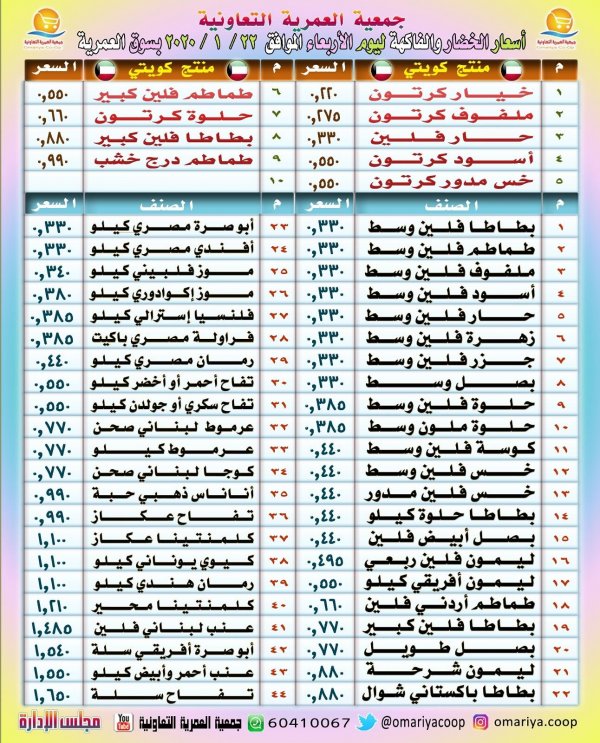 جمعية العمرية التعاونية
أسعار الخضار والفاكهة ليوم الأربعاء الموافق ٢٢ / ١ / ٢٠٢٠ بسوق العمرية
م منتج كويتي السعر م منتج كويتي السعر
١ خيار كرتون ٠,٢٢٠ ٦ طماطم فلين كبير ٠,٥٥٠
٢ ملفوف كرتون ٠,٢٧٥ ٧ حلوة كرتون ٠,٦٦٠
٣ حار فلين ٠,٣٣٠ ٨ بطاطا فلين كبير ٠,٨٨٠
٤ أسود كرتون ٠,٥٥٠ ٩ طماطم درج خشب ٠,٩٩٠
٥ خس مدور كرتون ٠,٥٥٠ ١٠
م الصنف السعر م الصنف السعر
١ بطاطا فلين وسط ٠,٣٣٠ ٢٣ أبو صرة مصري كيلو ٠,٣٣٠
٢ طماطم فلين وسط ٠,٣٣٠ ٢٤ أفندي مصري كيلو ٠,٣٣٠
٣ ملفوف فلين وسط ٠,٣٣٠ ٢٥ موز فلبيني كيلو ٠,٣٤٠
٤ أسود فلين وسط ٠,٣٣٠ ٢٦ موز إكوادوري كيلو ٠,٣٨٠
٥ حار فلين وسط ٠,٣٣٠ ٢٧ فلنسيا إسترالي كيلو ٠,٣٨٥
٦ زهرة فلين وسط ٠,٣٣٠ ٢٨ فراولة مصري باكيت ٠,٣٨٥
٧ جزر فلين وسط ٠,٣٣٠ ٢٩ رمان مصري كيلو ٠,٤٤٠
٨ بصل وسط ٠,٣٣٠ ٣٠ تفاح أحمر أو أخضر كيلو ٠,٥٥٠
٩ حلوة فلين وسط ٠,٣٨٥ ٣١ تفاح سكري أو جولدن كيلو ٠,٥٥٠
١٠ حلوة ملون وسط ٠,٣٨٥ ٣٢ عرموط لبناني صحن ٠,٧٧٠
١١ كوسة فلين وسط ٠,٤٤٠ ٣٣ عرموط كيلو ٠,٧٧٠
١٢ خس فلين وسط ٠,٤٤٠ ٣٤ كوجا لبناني صحن ٠,٧٧٠
١٣ خس فلين مدور ٠,٤٤٠ ٣٥ أناناس ذهبي حبة ٠,٩٩٠
١٤ بطاطا حلوة كيلو ٠,٤٤٠ ٣٦ تفاح عكاز ٠,٩٩٠
١٥ بصل أبيض فلين ٠,٤٤٠ ٣٧ كلمنتينا عكاز ١,١٠٠
١٦ ليمون فلين ربعي ٠,٤٩٥ ٣٨ كيوي يوناني كيلو ١,١٠٠
١٧ ليمون أفريقي كيلو ٠,٥٥٠ ٣٩ رمان هندي كيلو ١,١٠٠
١٨ طماطم أردني فلين ٠,٦٦٠ ٤٠ كلمنتينا محير ١,٢١٠
١٩ بطاطا فلين كبير ٠,٧٧٠ ٤١ عنب لبناني فلين ١,٤٨٥
٢٠ بصل طويل ٠,٧٧٠ ٤٢ أبو صرة أفريقي سلة ١,٥٤٠
٢١ ليمون شرحة ٠,٨٨٠ ٤٣ عنب أحمر وأبيض كيلو ١,٥٥٠
٢٢ بطاطا باكستاني شوال ٠,٨٨٠ ٤٤ تفاح سلة ١,٦٥٠
مجلس الإدارة You Tube جمعية العمرية التعاونية 60410067 @omariyacoop omariya.coop